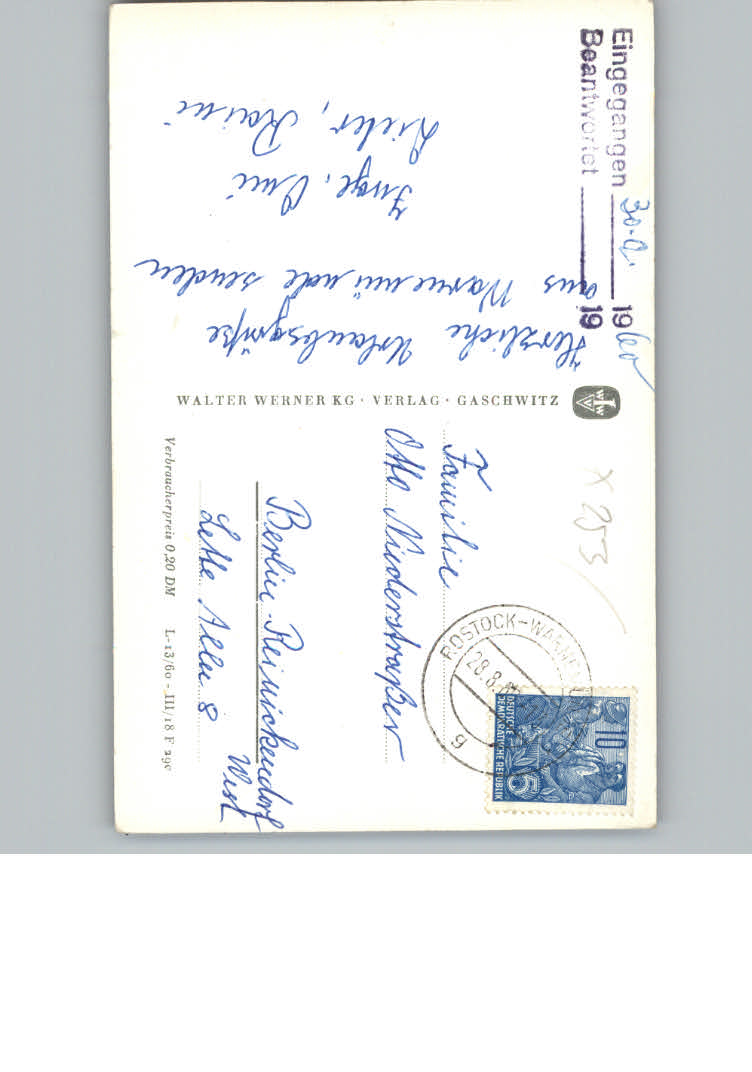 Eingegangen 30.8. 1960
Beantwortet 19
Herzliche Urlaubsgrüße
aus Warnemünde senden
Inge, Omi
Dieter, Raini
WALTER WERNER KG · VERLAG · GASCHWITZ
WW
X 253
ROSTOCK-WARNEM
28.8.
DEUTSCHE
DEMOKRATISCHE REPUBLIK
10
5
Familie
Otto Niederstraßer
Berlin-Reinickendorf
West
Lette Allee 8
Verbraucherpreis 0,20 DM L-13/60 - III/18 F 29c